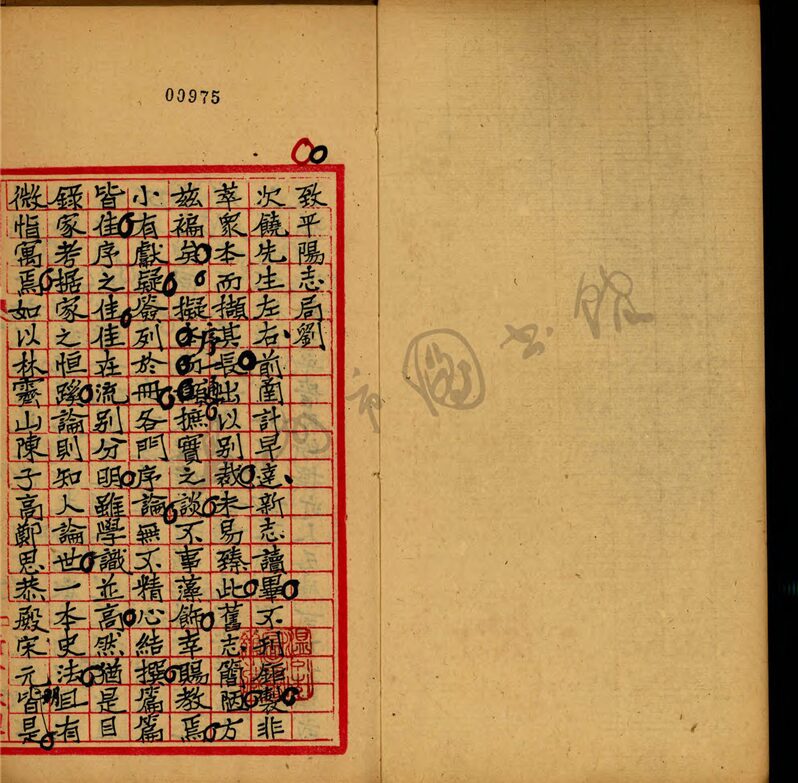 00975
致平陽志局劉
次饒先生左右前圅計早達新志讀畢不刊鉅製非
萃衆本而擷其長出以別裁未易臻此舊志簡陋方
茲褊矣擬序摭實之談不事藻飾幸賜教焉
小有獻疑簽列於冊各門序論無不精心結撰篇篇
皆佳序之佳佳在流別分明雖學識並高然猶是目
錄家考据家之恒蹊論則知人論世一本史法且有
微恉寓焉如以林霽山陳子高鄭思恭殿宋元明皆是
市圖书館